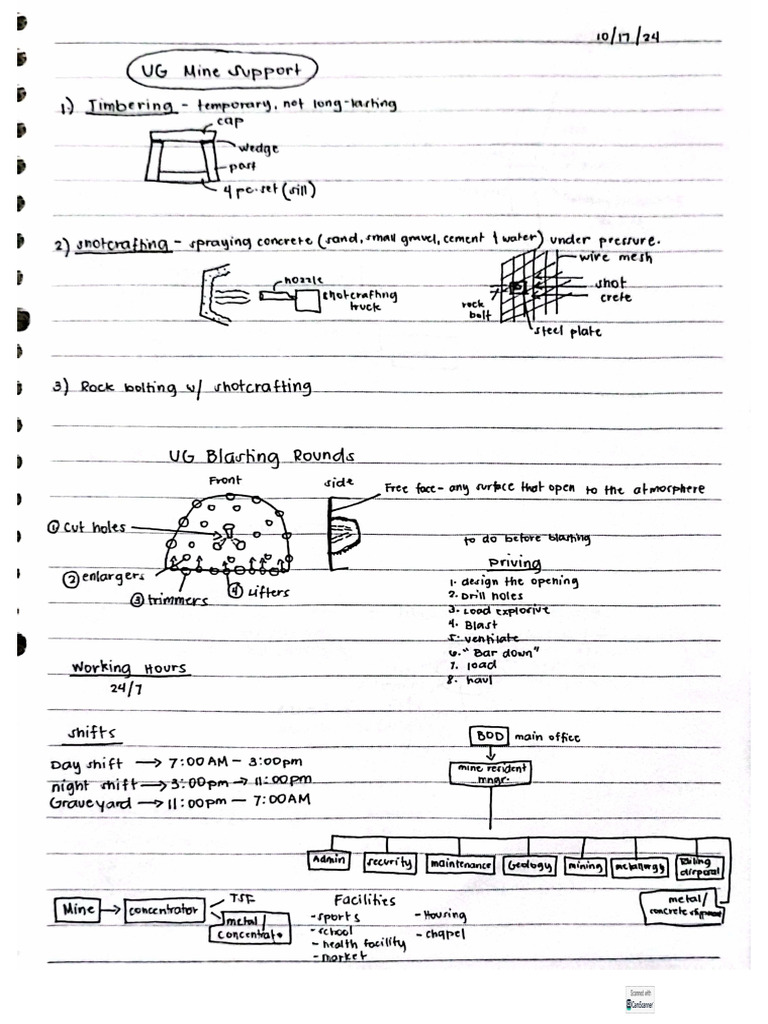 10/17/24
UG Mine Support
1.) Timbering - temporary, not long-lasting
cap
wedge
post
4 pc. set (sill)
2) shotcrafting - spraying concrete (sand, small gravel, cement & water) under pressure.
wire mesh
nozzle
shotcrafting
truck
shot
crete
rock
bolt
steel plate
3) Rock bolting w/ shotcrafting
UG Blasting Rounds
Front
side
Free face - any surface that open to the atmosphere
① cut holes
② enlargers
③ trimmers
④ Lifters
to do before blasting
Driving
1. design the opening
2. Drill holes
3. Load explosive
4. Blast
5. ventilate
6. "Bar down"
7. load
8. haul
Working Hours
24/7
shifts
Day shift → 7:00 AM - 3:00pm
night shift → 3:00pm → 11:00pm
Graveyard → 11:00pm - 7:00AM
BOD main office
mine resident
mngr.
Admin
security
maintenance
Geology
mining
metallurgy
disposal
metal/
Mine → concentrator
TSF
metal/
concentrate
Facilities
- sports
- school
- health facility
- market
- Housing
- chapel
Scanned with
CamScanner